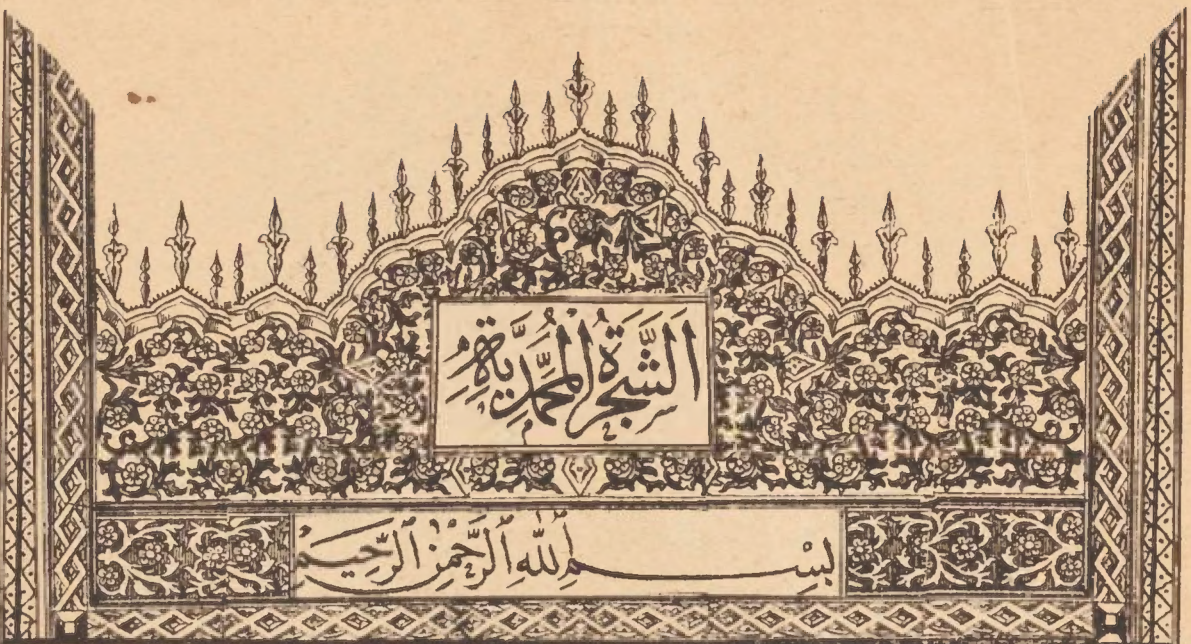 اَلشَّجَرَةُ الْمُحَمَّدِيَّةُ
بِسْمِ اللّٰهِ الرَّحْمٰنِ الرَّحِيمِ